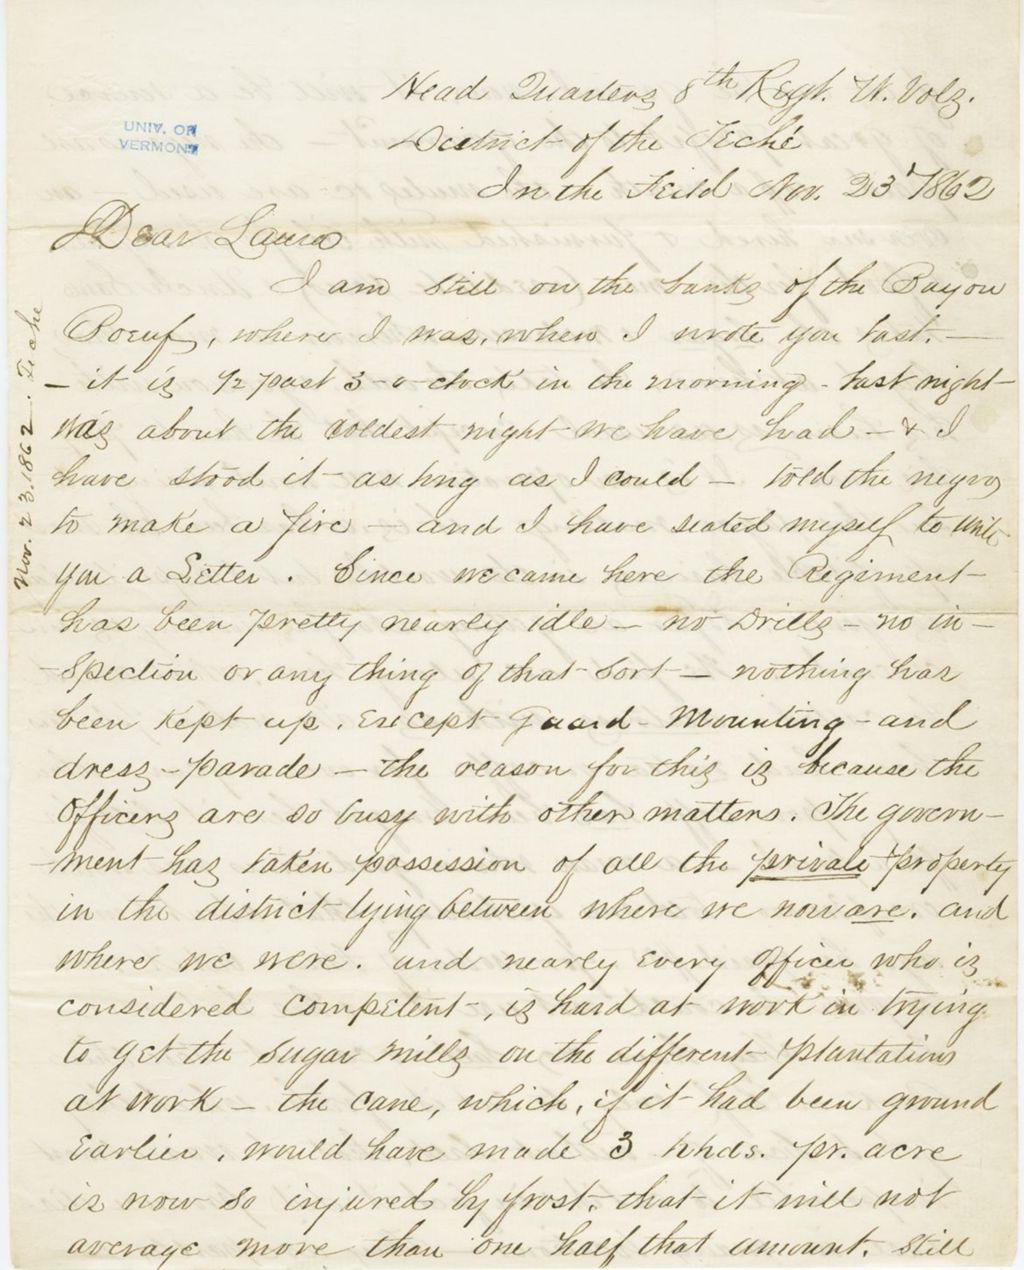 Head Quarters 8th Regt. Vt. Volz.
District of the Teché
In the Feild Nov. 23' 1862
UNIV. OF
VERMONT
Dear Laura
I am still on the banks of the Bayou
Boeuf, where I was, when I wrote you last. —
– it is ½ past 3-o-clock in the morning - last night
was about the coldest night we have had – & I
have stood it as long as I could – told the negro
to make a fire – and I have seated myself to write
you a Letter. Since we came here the Regiment
has been pretty nearly idle – no Drills – no in-
-spection or any thing of that sort – nothing has
been kept up. Except Guard-Mounting - and
dress-parade – the reason for this is because the
Officers are so busy with other matters. The govern-
-ment has taken possession of all the private property
in the district lying between where we now are. and
where we were. and nearly every Officer who is
considered competent, is hard at work in trying
to get the Sugar Mills on the different plantations
at work – the cane, which, if it had been ground
Earlier, would have made 3 hhds. pr. acre
is now so injured by frost, that it will not
average more than one half that amount. Still
Nov. 23. 1862. Teche